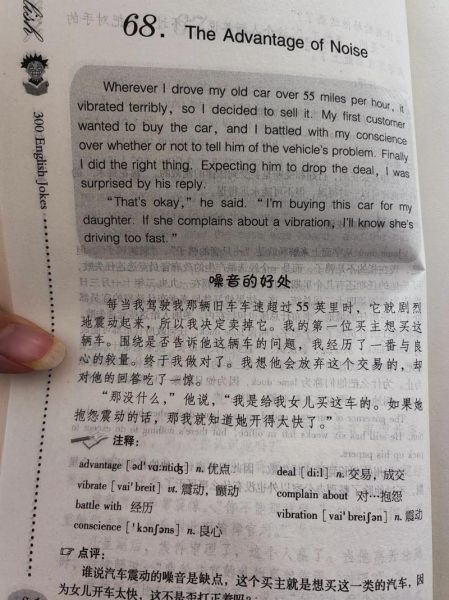 lish
300 English Jokes
68. The Advantage of Noise
Wherever I drove my old car over 55 miles per hour, it
vibrated terribly, so I decided to sell it. My first customer
wanted to buy the car, and I battled with my conscience
over whether or not to tell him of the vehicle's problem. Finally
I did the right thing. Expecting him to drop the deal, I was
surprised by his reply.
"That's okay," he said. "I'm buying this car for my
daughter. If she complains about a vibration, I'll know she's
driving too fast."
噪音的好处
每当我驾驶我那辆旧车车速超过 55 英里时，它就剧烈
地震动起来，所以我决定卖掉它。我的第一位买主想买这
辆车。围绕是否告诉他这辆车的问题，我经历了一番与良
心的较量。终于我做对了。我想他会放弃这个交易的，却
对他的回答吃了一惊。
"那没什么，"他说，"我是给我女儿买这车的。如果她
抱怨震动的话，那我就知道她开得太快了。"
注释：
advantage [ədˈvɑːntidʒ] n. 优点 deal [diːl] n. 交易，成交
vibrate [vaiˈbreit] vt. 震动，颤动 complain about 对…抱怨
battle with 经历 vibration [vaiˈbreiʃən] n. 震动
conscience [ˈkɔnʃəns] n. 良心
点评：
谁说汽车震动的噪音是缺点，这个买主就是想买这一类的汽车，因
为女儿开车太快，这不是歪打正着吗？